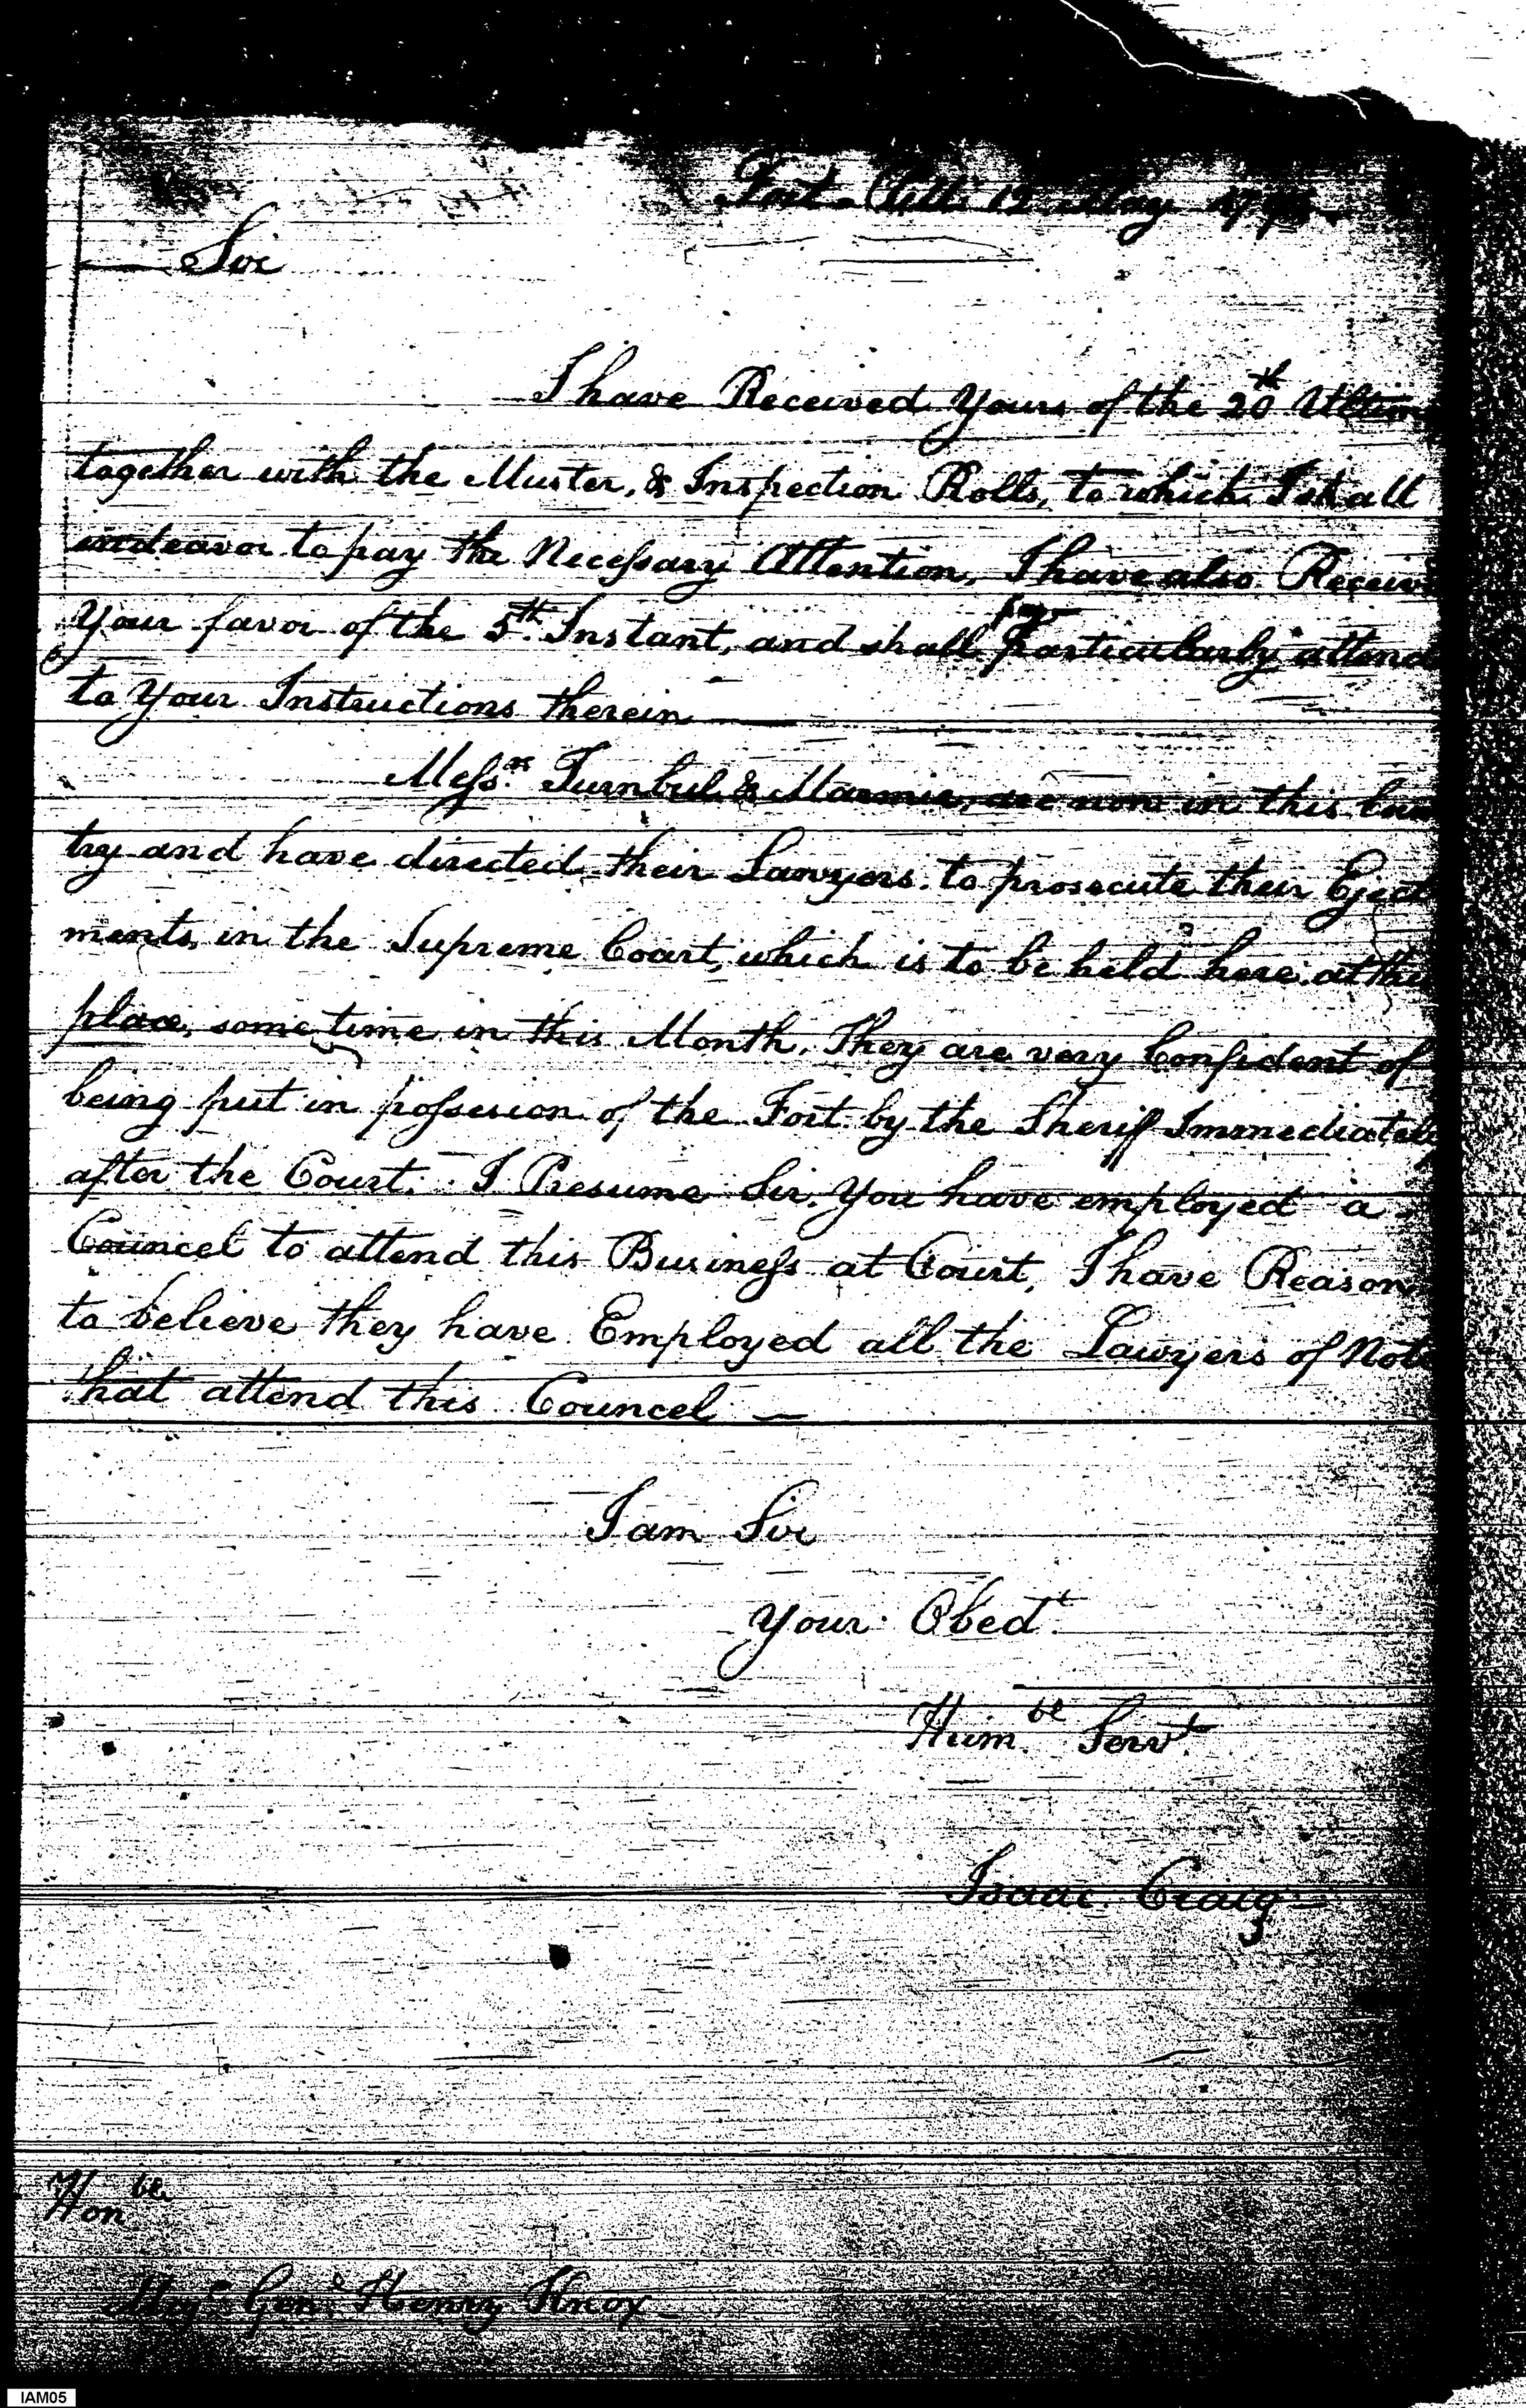 Fort Pitt 12 May
Sir
I have Received Yours of the 20th Ultimo
together with the Muster, & Inspection Rolls, to which I shall
indeavor to pay the Necessary Attention, I have also Receiv
Your favor of the 5th Instant, and shall particularly attend
to Your Instructions therein
Messrs Turnbul & Marmie, are now in this Coun
try and have directed their Lawyers to prosecute their Eject
ments, in the Supreme Court, which is to be held here at this
place, some time in this Month. They are very Confident of
being put in possesion of the Fort by the Sherif Immediately
after the Court. I Presume Sir, You have employed a
Councel to attend this Business at Court, I have Reason
to believe they have Employed all the Lawyers of Note
that attend this Councel —
I am Sir
Your Obedt
Humble Servt
Isaac Craig
Honble
Majr Genl Henry Knox
IAM05